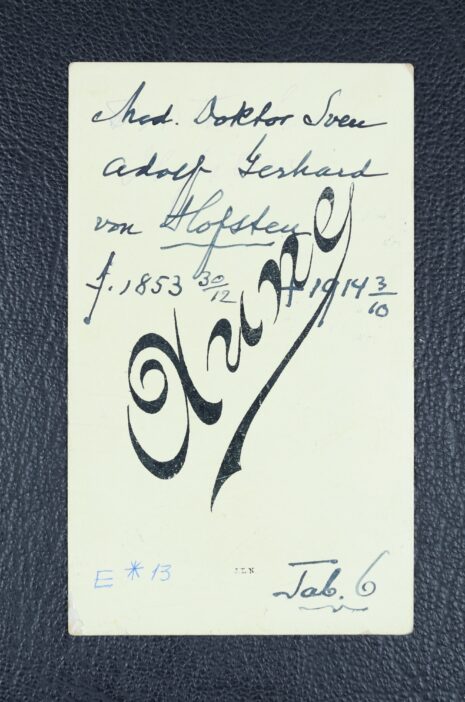 Med. Doktor Sven
Adolf Gerhard
von Hofsten
f. 1853 30/12 † 1914 3/10
Xune
E * 13
JLN
Tab. 6